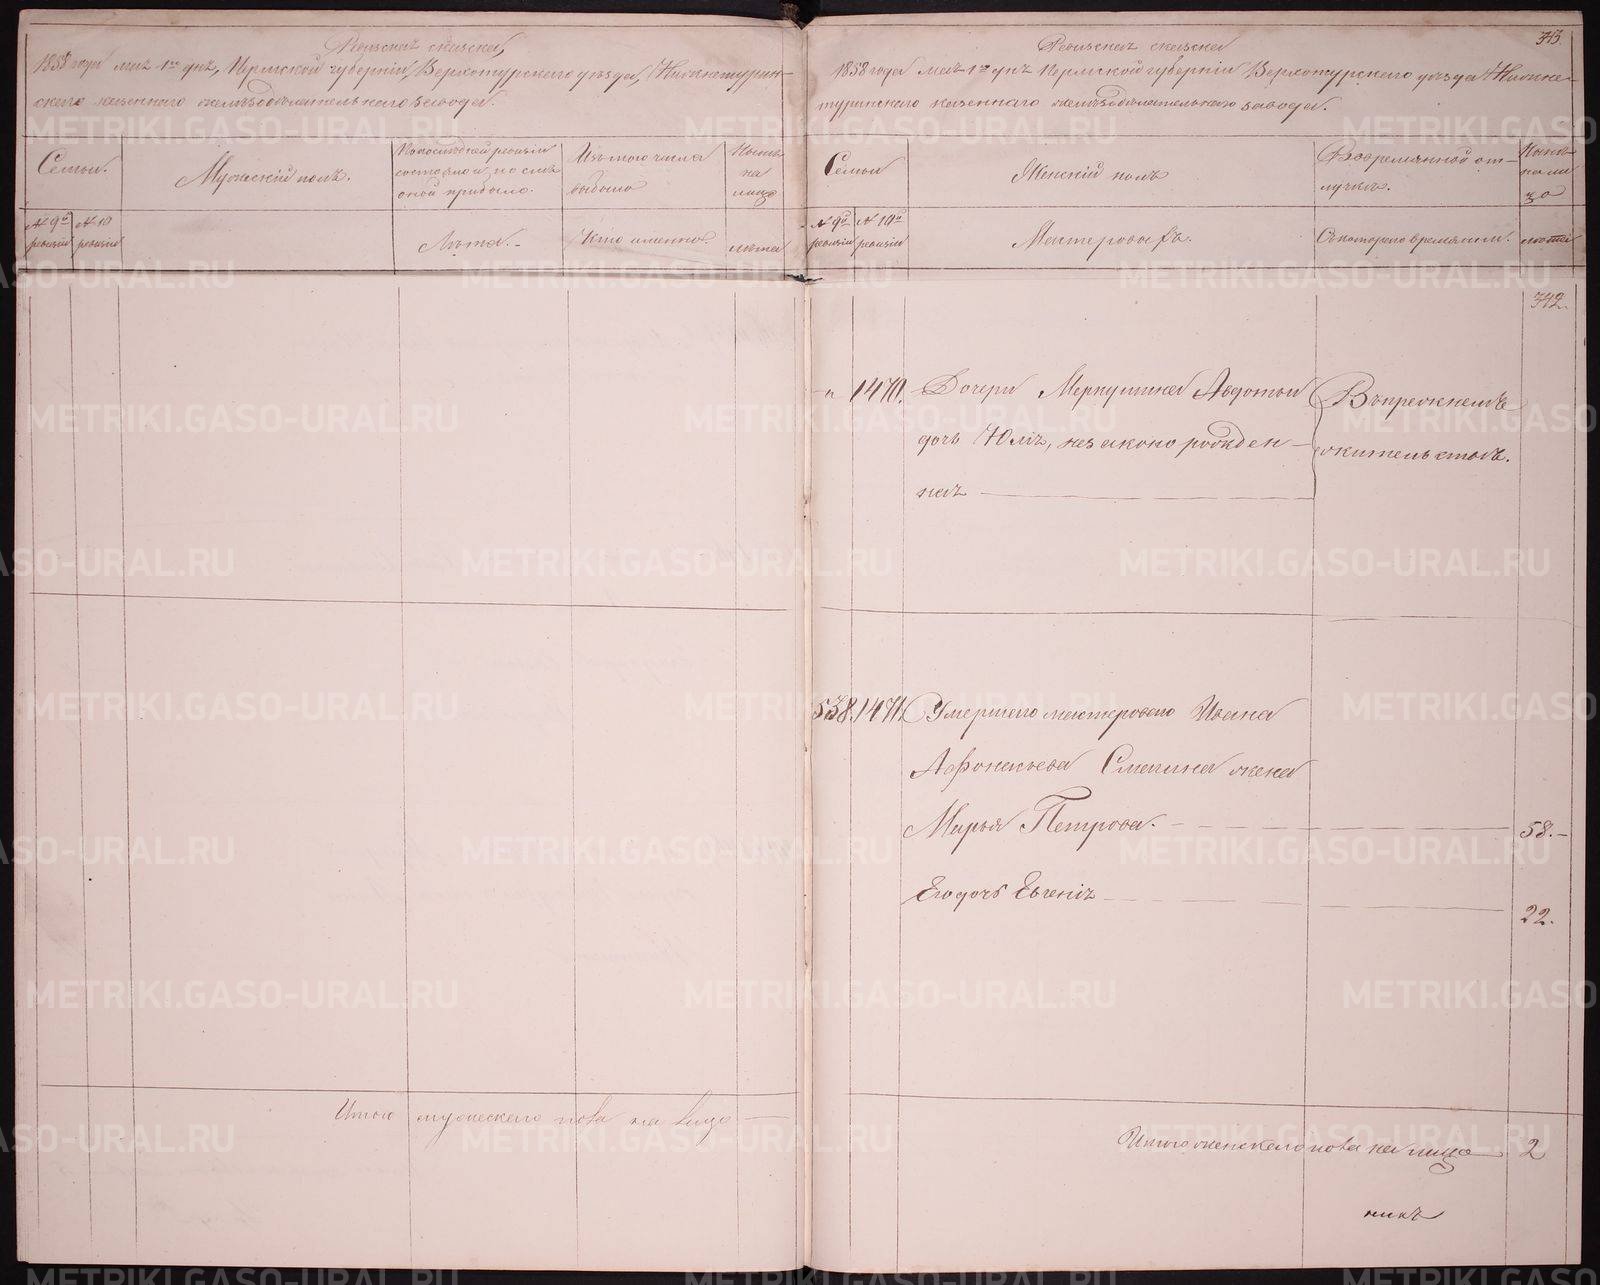 Ревизская сказка,
1858 года маія 1го дня, Пермской губерніи, Верхотурскаго уезда, Нижнетурин-
скаго казеннаго железоделательнаго завода.
Семьи.
Мужескій полъ.
По последней ревизіи
состояло и после
оной прибыло.
Изъ того числа
выбыло
Ныне
на
лицо
№ 9й
ревизіи
№ 10
ревизіи
Лѣта.
Кто именно.
лѣта
Итого мужескаго пола на лицо —
Ревизская сказка
343.
1858 года маія 1го дня Пермской губерніи Верхотурскаго уезда Нижне-
туринскаго казеннаго железоделательнаго завода.
Семьи
Женскій полъ
Во временной от-
лучке.
Ныне
на ли
цо
№ 9й
ревизіи
№ 10й
ревизіи
Мастероваѣ.
Съ котораго времяни.
лѣта
342.
" 1470. Дочери Меркушина Авдотьи
дочь Юлія, незаконо рожден-
ная
Въ прежнемъ
жительстве.
538. 1471. Умершаго мастероваго Ивана
Афонасьева Смагина жена
Марья Петрова. 58.
Его дочь Евгенія 22.
Итого женскаго пола на лицо 2